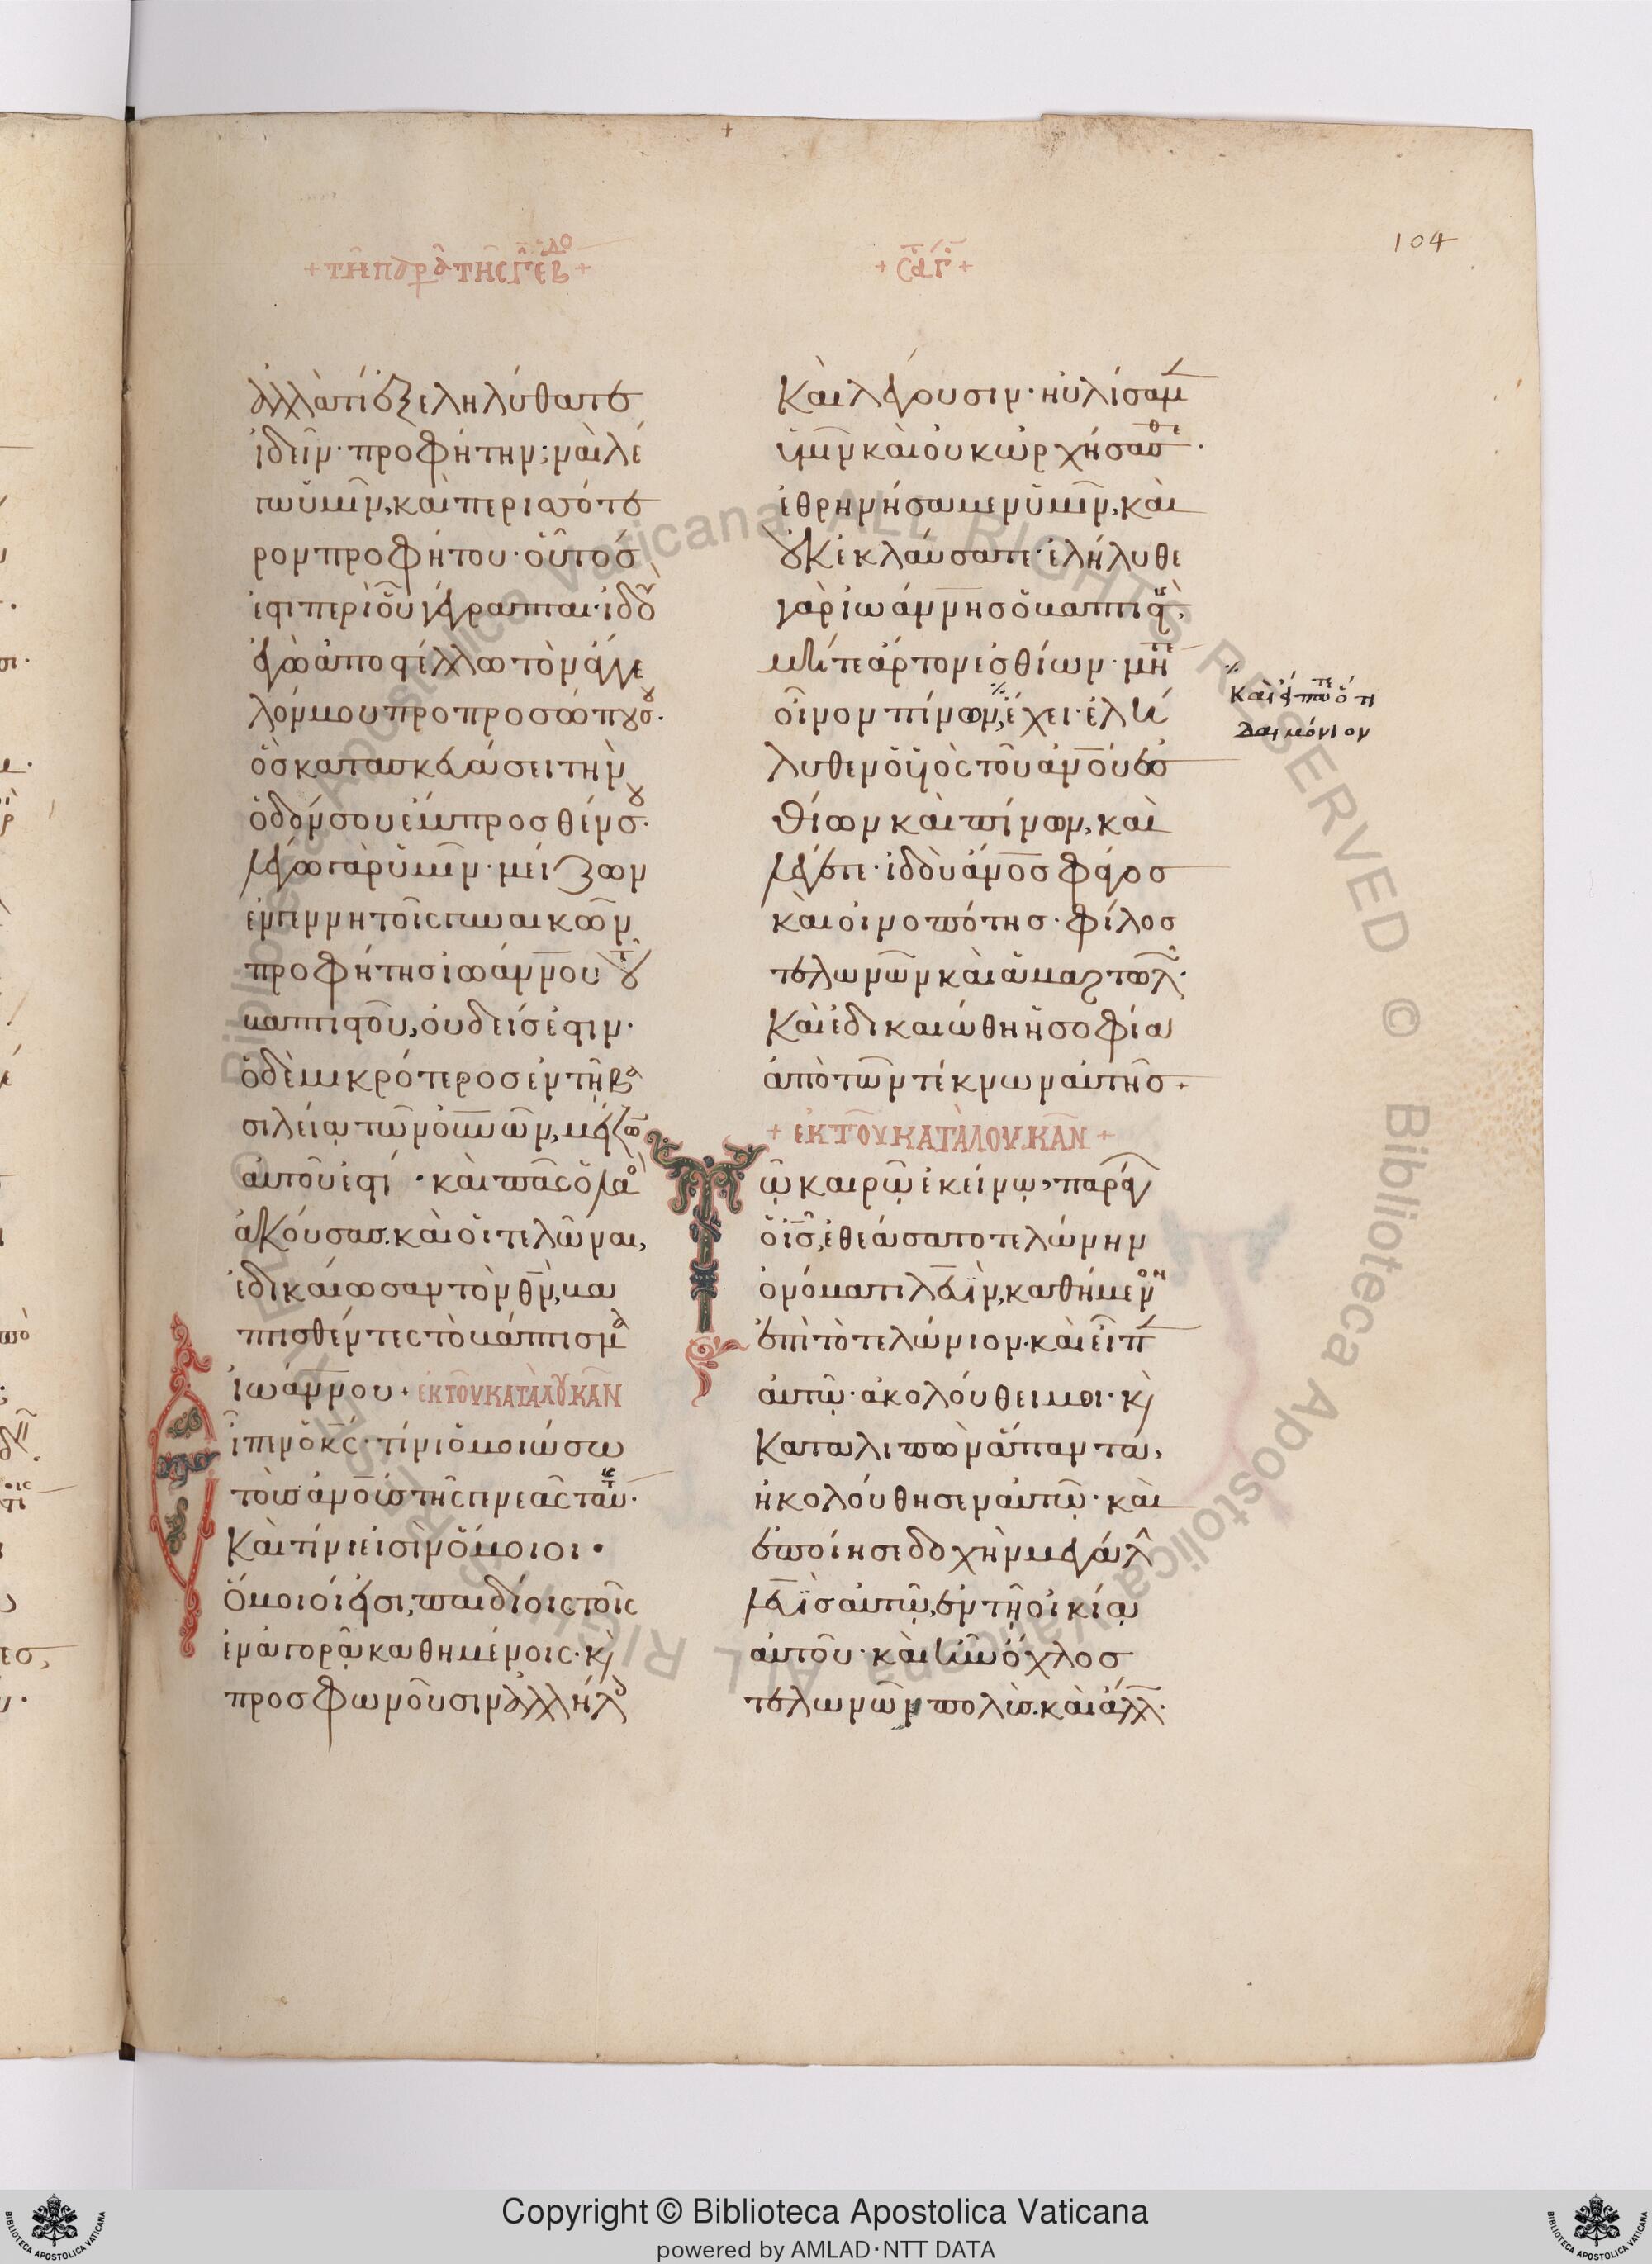 104
+ τῆ παρα τῆς γ εβδο +
+ σα γ +
ἀλλὰ τί ἐξεληλύθατε
ἰδεῖν· προφήτην; ναὶ λέ
γω ὑμῖν, καὶ περισσότε
ρον προφήτου· οὗτός
ἐστι περὶ οὗ γέγραπται· ἰδοὺ
ἐγὼ ἀποστέλλω τὸν ἄγγε
λόν μου πρὸ προσώπου σου·
ὃς κατασκευάσει τὴν
ὁδόν σου ἔμπροσθέν σου·
λέγω γὰρ ὑμῖν· μείζων
ἐν γεννητοῖς γυναικῶν
προφήτης ἰωάννου τοῦ
βαπτιστοῦ, οὐδείς ἐστιν·
ὁ δὲ μικρότερος ἐν τῆ βα
σιλείᾳ τῶν οὐνῶν, μείζων
αὐτοῦ ἐστί· καὶ πᾶς ὁ λαὸς
ἀκούσας. καὶ οἱ τελῶναι,
ἐδικαίωσαν τὸν θν, βα
πτισθέντες τὸ βάπτισμα
ἰωάννου· ἐκ τοῦ κατὰ λουκᾶν
Εἶπεν ὁ κς· τίνι ὁμοιώσω
τοὺς ἀνους τῆς γενεᾶς ταύτης·
καὶ τίνι εἰσὶν ὅμοιοι·
ὅμοιοί εἰσι, παιδίοις τοῖς
ἐν ἀγορᾷ καθημένοις· καὶ
προσφωνοῦσιν ἀλλήλοις
καὶ λέγουσιν· ηὐλίσαμεν
ὑμῖν καὶ οὐκ ὠρχήσασθε·
ἐθρηνήσαμεν ὑμῖν, καὶ
οὐκ ἐκλαύσατε· ἐλήλυθε
γὰρ ἰωάννης ὁ βαπτιστὴς,
μήτε ἄρτον ἐσθίων· μήτε
οἶνον πίνων, ἔχει· ἐλή
λυθεν ὁ υἱὸς τοῦ ἀνου ἐσ
θίων καὶ πίνων, καὶ
λέγετε· ἰδοὺ ἀνος φάγος
καὶ οἰνοπότης· φίλος
τελωνῶν καὶ ἁμαρτωλῶν·
καὶ ἐδικαιώθη ἡ σοφία
ἀπὸ τῶν τέκνων αὐτῆς +
+ ἐκ τοῦ κατὰ λουκᾶν +
Τῷ καιρῷ ἐκείνῳ, παράγων
ὁ ις, ἐθεάσατο τελώνην
ὀνόματι λευὶν, καθήμενον
ἐπὶ τὸ τελώνιον· καὶ εἶπεν
αὐτῷ· ἀκολούθει μοι· καὶ
καταλιπὼν ἅπαντα,
ἠκολούθησεν αὐτῷ· καὶ
ἐποίησε δοχὴν μεγάλην
λευὶς αὐτῷ, ἐν τῇ οἰκίᾳ
αὐτοῦ· καὶ ἦν ὄχλος
τελωνῶν πολὺς. καὶ ἄλλων·
καὶ λέγετε ὅτι
δαιμόνιον
Copyright © Biblioteca Apostolica Vaticana
powered by AMLAD·NTT DATA
© Biblioteca Apostolica Vaticana ALL RIGHTS RESERVED
BIBLIOTECA APOSTOLICA VATICANA
BIBLIOTECA APOSTOLICA VATICANA